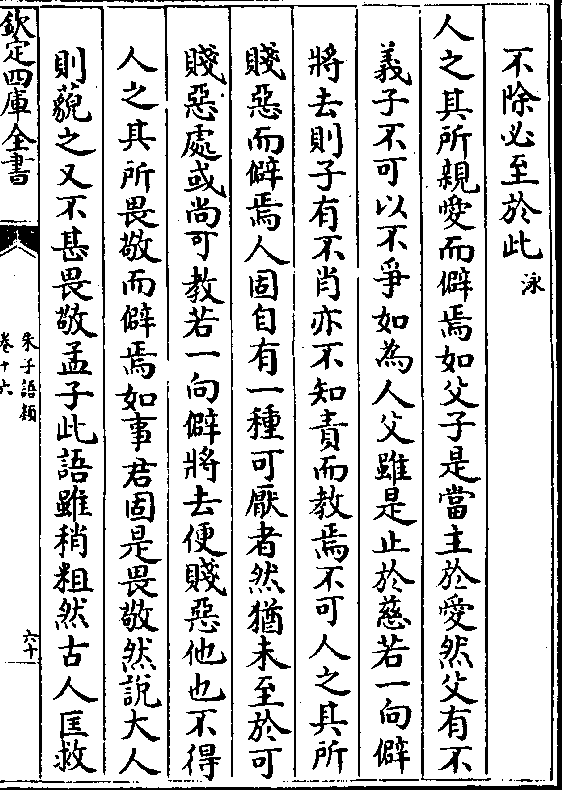 不除必至於此泳
人之其所親愛而僻焉如父子是當主於愛然父有不
義子不可以不爭如為人父雖是止於慈若一向僻
將去則子有不肖亦不知責而教焉不可人之其所
賤惡而僻焉人固自有一種可厭者然猶未至於可
賤惡處或尚可教若一向僻將去便賤惡他也不得
人之其所畏敬而僻焉如事君固是畏敬然說大人
則藐之又不甚畏敬孟子此語雖稍粗然古人匡救
欽定四庫全書
朱子語類
卷十六
六十